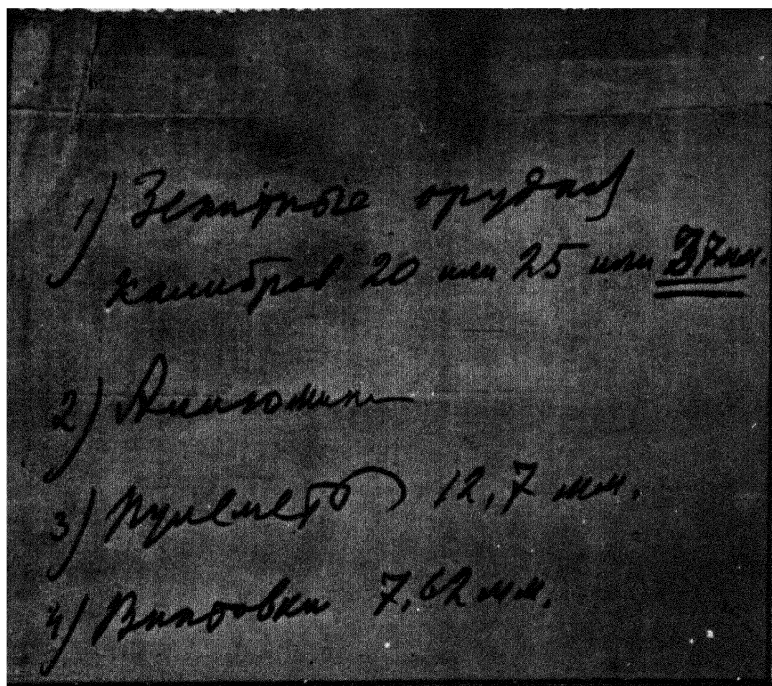 1) Зенитные орудия
калибров 20 или 25 или 37 мм.
2) Алюмин
3) Пулеметы 12,7 мм.
4) Винтовки 7,62 мм.